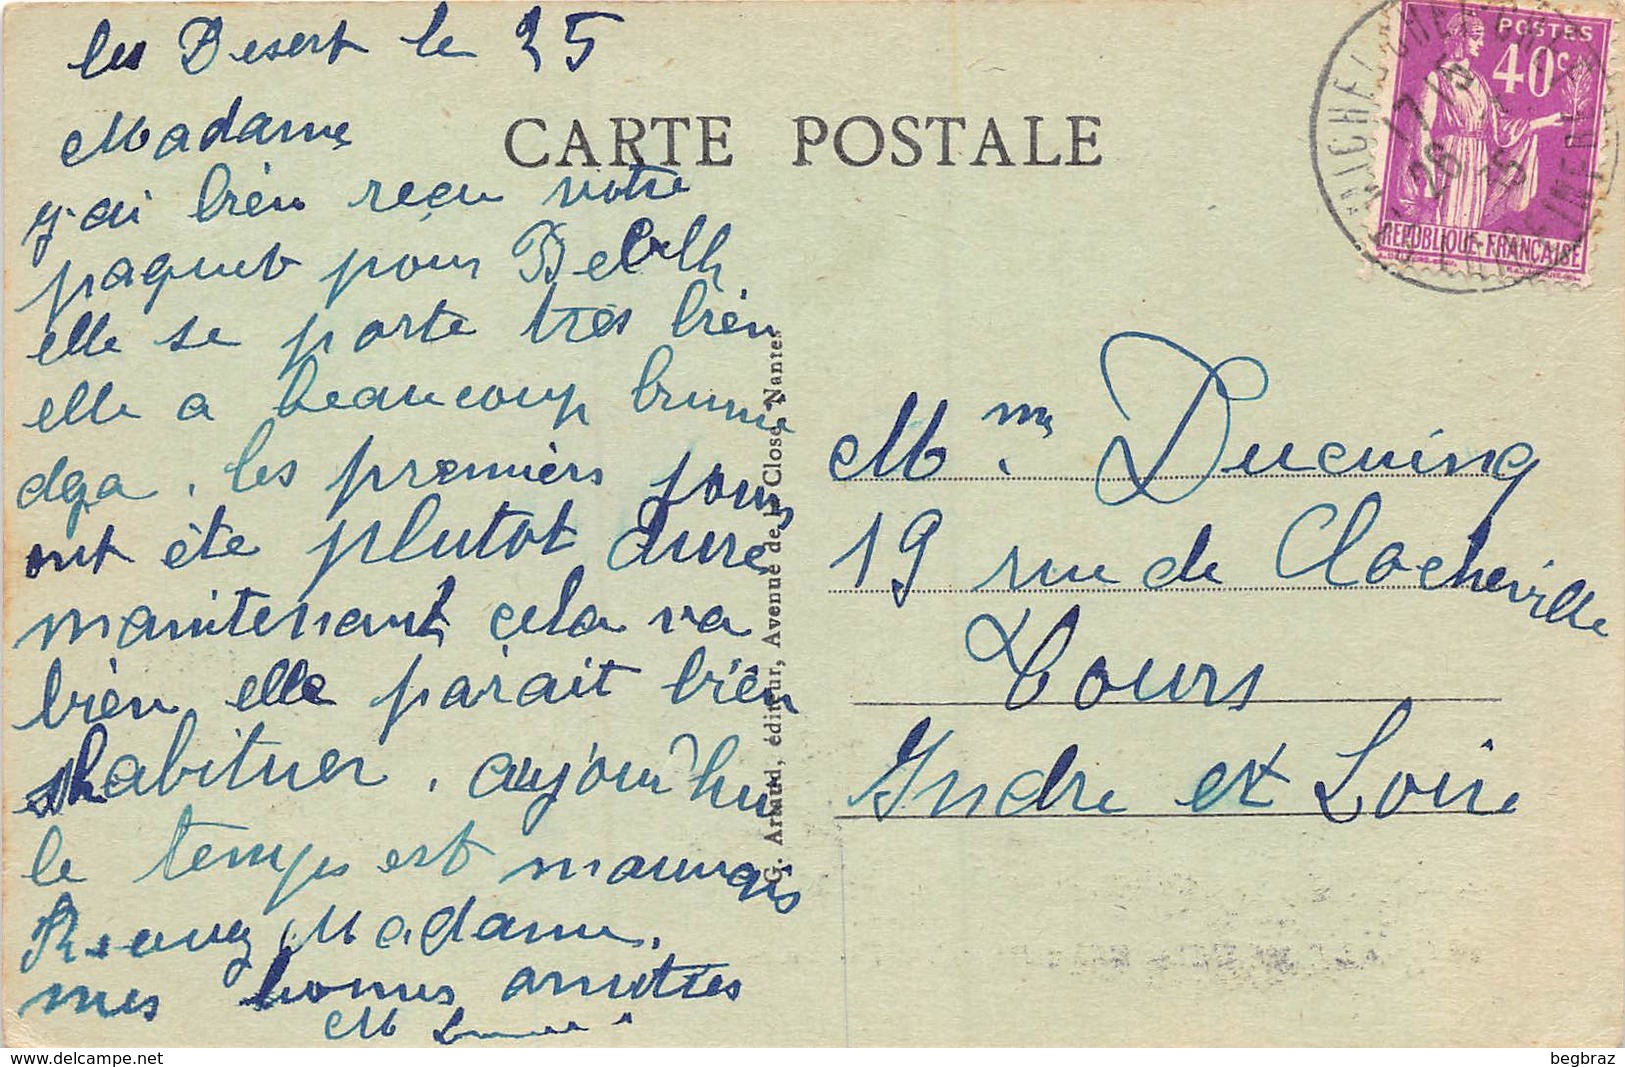 les Besert le 25
Madame
j'ai bien reçu votre
paquet pour
elle se porte très bien
elle a beaucoup bruni
deja. les premiers jours
ont été plutot dure
maintenant cela va
bien elle parait bien
shabituer. aujourd'hui
le temps est mauvais
Recevez Madame.
mes bonnes amitiés
M
CARTE POSTALE
G. Artaud, éditeur, Avenue de la Close, Nantes
POSTES
40c
REPUBLIQUE FRANÇAISE
MICHEL CHEF CHEF
17 15
26
35
LOIRE INFRE
Mme. Ducuing
19 rue de Clocheville
Tours
Indre et Loire
www.delcampe.net
begbraz